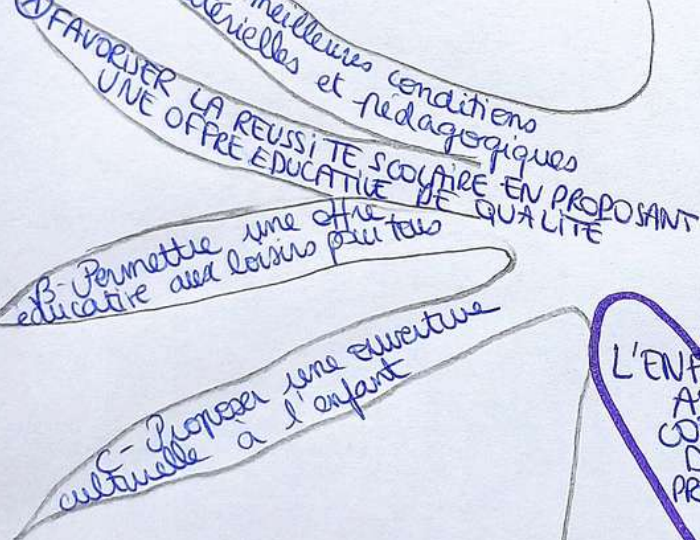 meilleures conditions
térielles et pédagogiques
A FAVORISER LA REUSSITE SCOLAIRE EN PROPOSANT
UNE OFFRE EDUCATIVE DE QUALITE
B- Permettre une offre
educative aux loisirs pour tous
C- Proposer une ouverture
culturelle à l'enfant
L'ENF
A
CO
D
PR